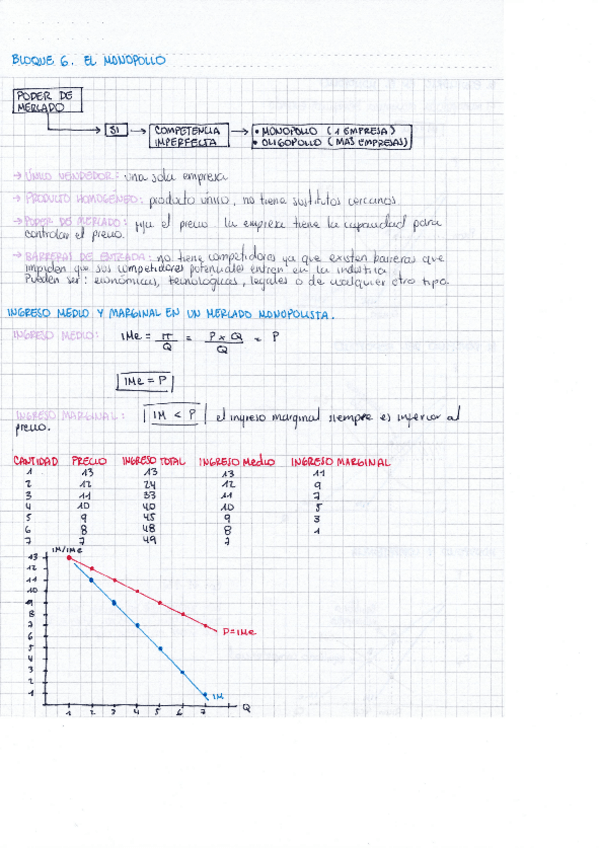 BLOQUE 6. EL MONOPOLIO
PODER DE
MERCADO
SI
COMPETENCIA
IMPERFECTA
• MONOPOLIO (1 EMPRESA)
• OLIGOPOLIO (MAS EMPRESAS)
→ ÚNICO VENDEDOR: una sola empresa
→ PRODUCTO HOMOGÉNEO: producto único, no tiene sustitutos cercanos
→ PODER DE MERCADO: fija el precio. la empresa tiene la capacidad para
controlar el precio.
→ BARRERAS DE ENTRADA: no tiene competidores ya que existen barreras que
impiden que sus competidores potenciales entren en la industria
Pueden ser: económicas, tecnológicas, legales o de cualquier otro tipo.
INGRESO MEDIO Y MARGINAL EN UN MERCADO MONOPOLISTA.
INGRESO MEDIO: IMe = IT/Q = P x Q/Q = P
IMe = P
INGRESO MARGINAL: IM < P el ingreso marginal siempre es inferior al
precio.
CANTIDAD PRECIO INGRESO TOTAL INGRESO MEDIO INGRESO MARGINAL
1 13 13 13 11
2 12 24 12 9
3 11 33 11 7
4 10 40 10 5
5 9 45 9 3
6 8 48 8 1
7 7 49 7
IM/IMe
13
12
11
10
9
8
7
6
5
4
3
2
1
P=IMe
IM
1 2 3 4 5 6 7 Q